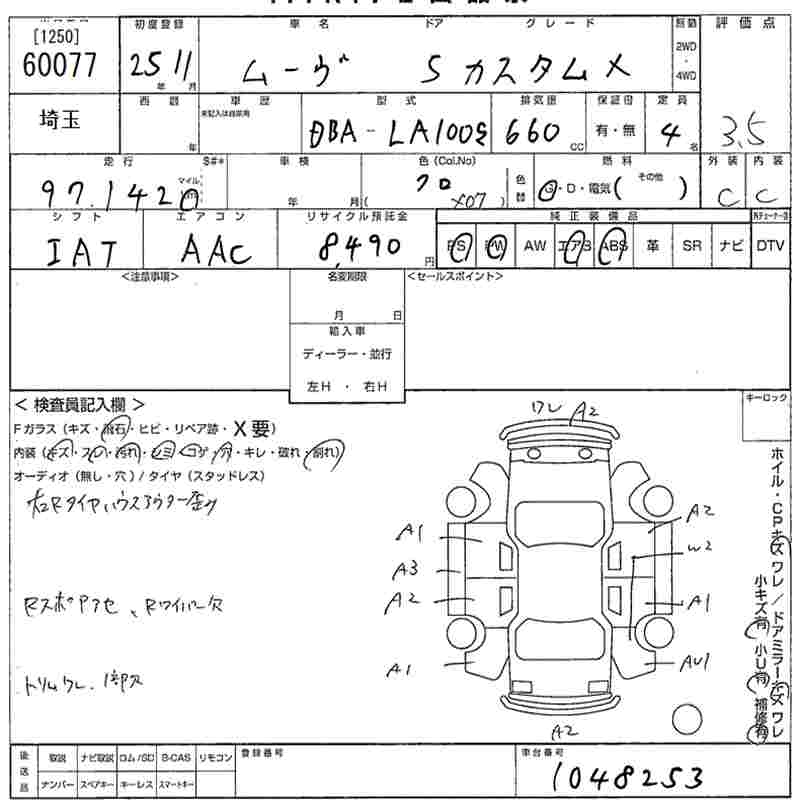 [1250]
60077
初度登録
25 11
年 月
車名
ドア
グレード
ムーヴ 5 カスタムX
駆動
2WD
・
4WD
評価点
3.5
埼玉
西暦
年
車歴
未記入は自家用
型式
DBA-LA100S
排気量
660
CC
保証書
有・無
定員
4
名
走行
S#*
97,142
マイル
km
車検
年 月(
色(Col.No)
クロ
X07 )
色替
燃料
G・D・電気( その他 )
外装
C
内装
C
シフト
IAT
エアコン
AAC
リサイクル預託金
8,490
円
純正装備品
PS PW AW エアB ABS 革 SR ナビ
DTV
<注意事項>
名変期限
月 日
輸入車
ディーラー・並行
左H ・ 右H
<セールスポイント>
< 検査員記入欄 >
Fガラス (キズ・飛石・ヒビ・リペア跡・X要)
内装 (キズ・スレ・汚れ・シミ・コゲ・穴・キレ・破れ・割れ)
オーディオ (無し・穴) / タイヤ (スタッドレス)
右Rタイヤハウスアウター歪み
RスポアセR、Rワイパー欠
トリムワレ、1部欠
キーロック
ワレ A2
A1
A3
A2
A1
A2
W2
A1
AU1
A2
ホイル・CPキズ ワレ / ドアミラーキズ ワレ
小キズ有 小U有 補修有
後送品
取説 ナビ取説 ロム/SD B-CAS リモコン
ナンバー スペアキー キーレス スマートキー
登録番号
車台番号
1048253